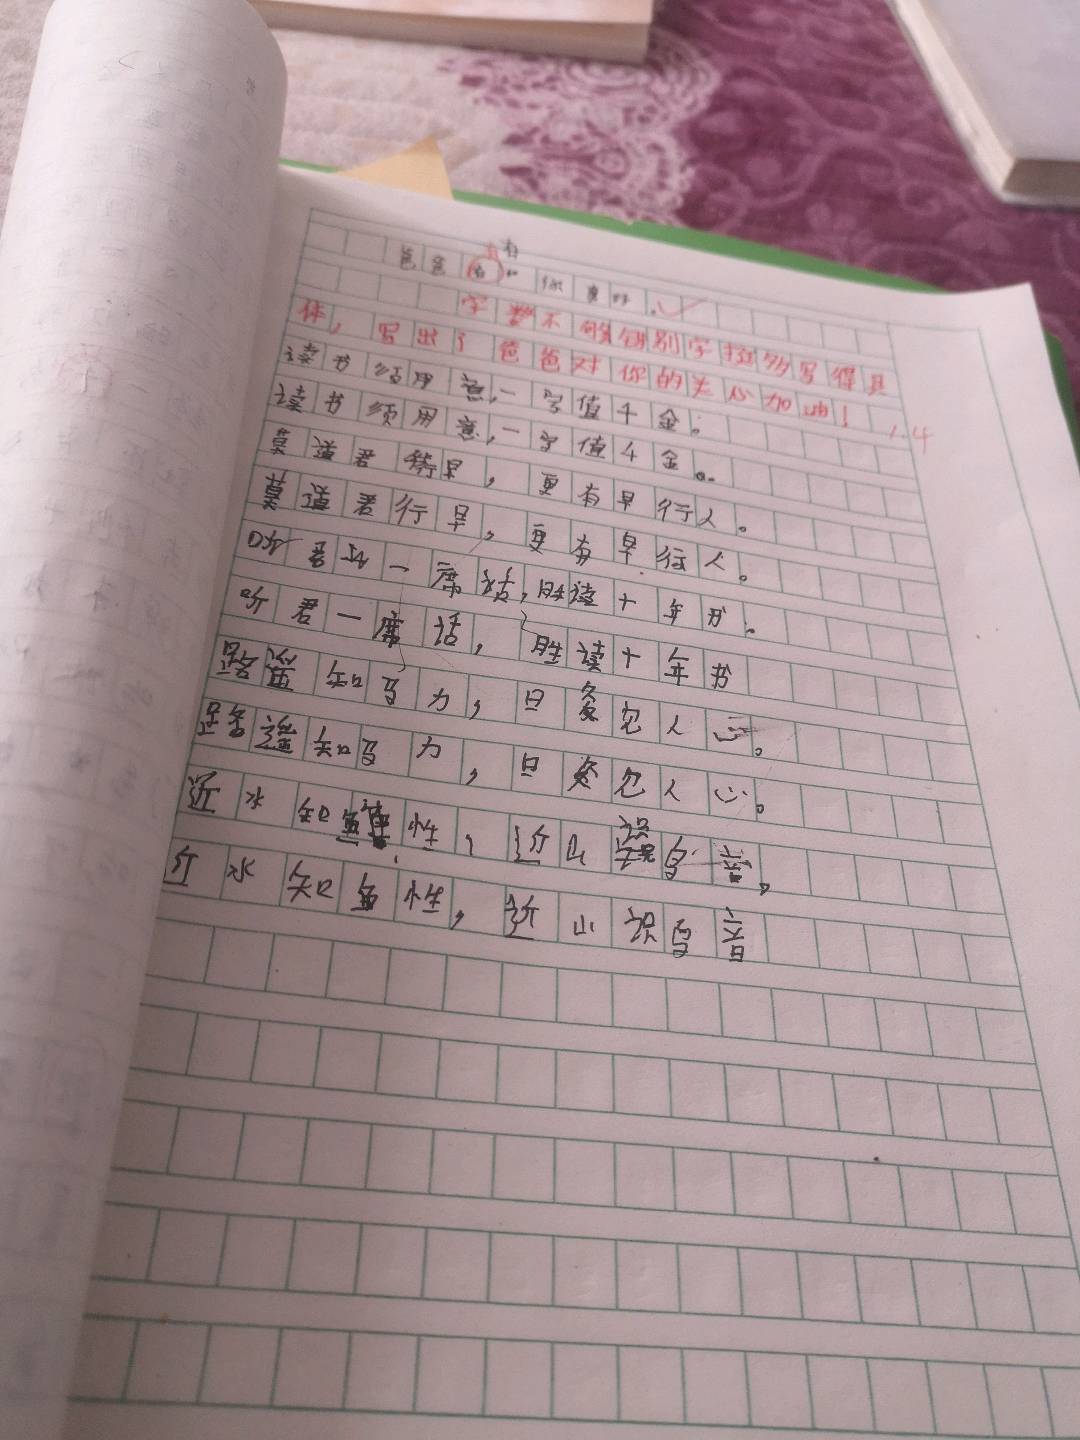 有
爸爸有你真好.
字数不够错别字挺多写得具
体，写出了爸爸对你的关心加油！ 1.4
读书须用意,一字值千金。
读书须用意,一字值千金。
莫道君行早，更有早行人。
莫道君行早，更有早行人。
听君一席话，胜读十年书。
听君一席话，胜读十年书
路遥知马力，日久见人心。
路遥知马力，日久见人心。
近水知鱼性，近山识鸟音。
近水知鱼性，近山识鸟音